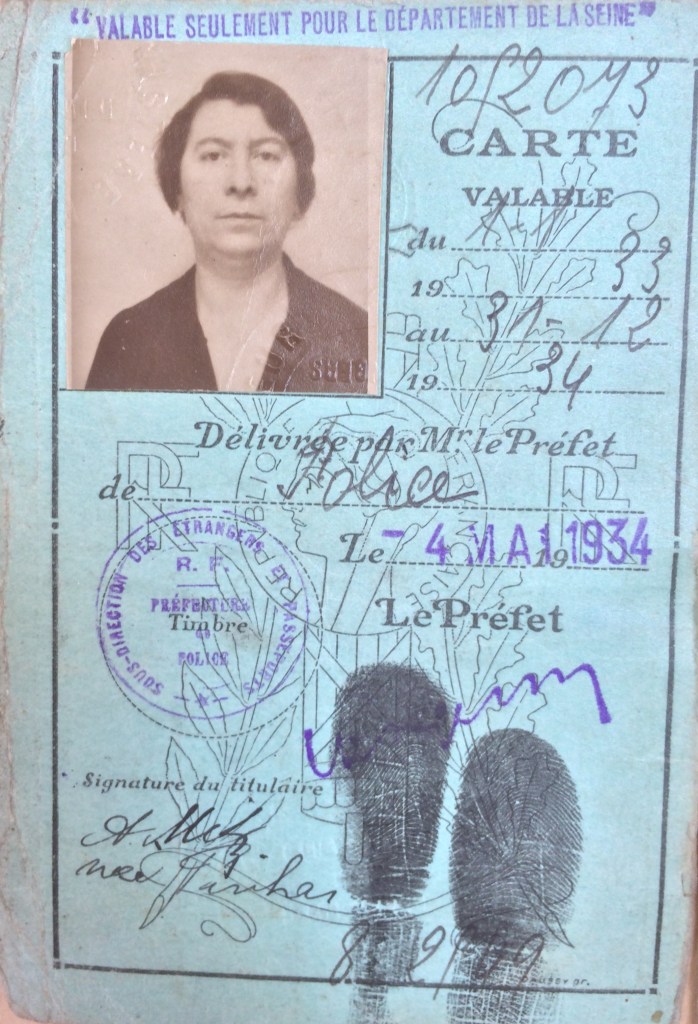 "VALABLE SEULEMENT POUR LE DÉPARTEMENT DE LA SEINE"
CARTE
VALABLE
du 1-1
1933
au 31-12
1934
Délivrée par Mr le Préfet
de Police
Le -4 MAI 1934
19
SOUS-DIRECTION DES ÉTRANGERS ET PASSEPORTS
R. F.
PRÉFECTURE
DE
POLICE
Timbre
Le Préfet
Signature du titulaire
A. Metz
née